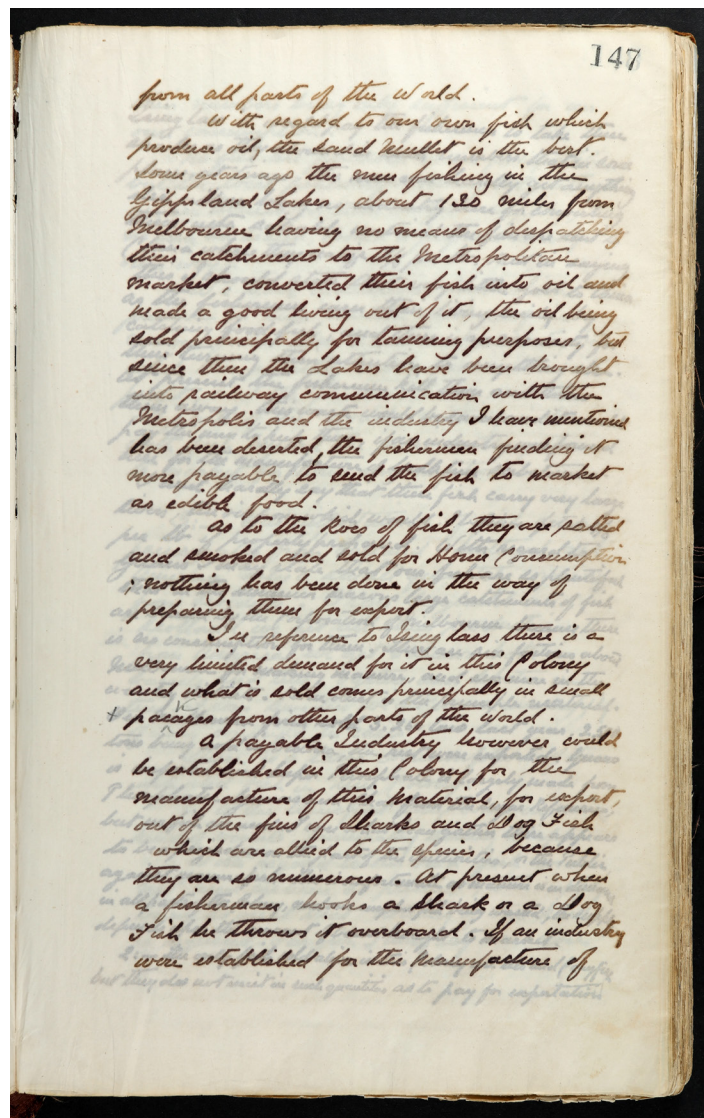 147
from all parts of the World.
With regard to our own fish which
produce oil, the Sand Mullet is the best.
Some years ago the men fishing in the
Gippsland Lakes, about 130 miles from
Melbourne having no means of despatching
their catchments to the Metropolitan
market, converted their fish into oil and
made a good living out of it, the oil being
sold principally for tanning purposes, but
since then the Lakes have been brought
into railway communication with the
Metropolis and the industry I have mentioned
has been deserted, the fishermen finding it
more payable to send the fish to market
as edible food.
As to the Roes of fish they are salted
and smoked and sold for Home Consumption
; nothing has been done in the way of
preparing them for export.
In reference to Isinglass there is a
very limited demand for it in this Colony
and what is sold comes principally in small
+ pacages from other parts of the world.
A payable Industry however could
be established in this Colony for the
manufacture of this Material, for export,
out of the fins of Sharks and Dog Fish
which are allied to the species, because
they are so numerous. At present when
a fisherman hooks a Shark or a Dog
Fish he throws it overboard. If an industry
were established for the Manufacture of
but they do not exist in such quantities as to pay for exportation